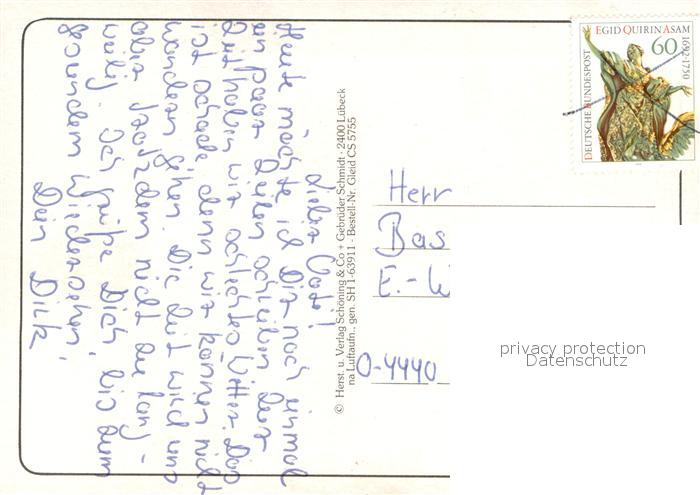 Lieber Vati!
Heute möchte ich Dir noch einmal
ein paar Zeilen schreiben. Zur
Zeit haben wir schlechtes Wetter. Das
ist schade denn wir können nicht
wandern gehen. Die Zeit wird uns
aber trotzdem nicht zu lang-
weilig. Ich grüße Dich bis zum
gesundem Wiedersehen!
Dein Dirk.
© Herst. u. Verlag Schöning & Co + Gebrüder Schmidt · 2400 Lübeck
na Luftaufn., gen. SH 1-63911 · Bestell-Nr. Gleid CS 5755
EGID QUIRIN ASAM
1692-1750
60
DEUTSCHE BUNDESPOST
Herr
Bas
E.-W
O-4440
privacy protection
Datenschutz